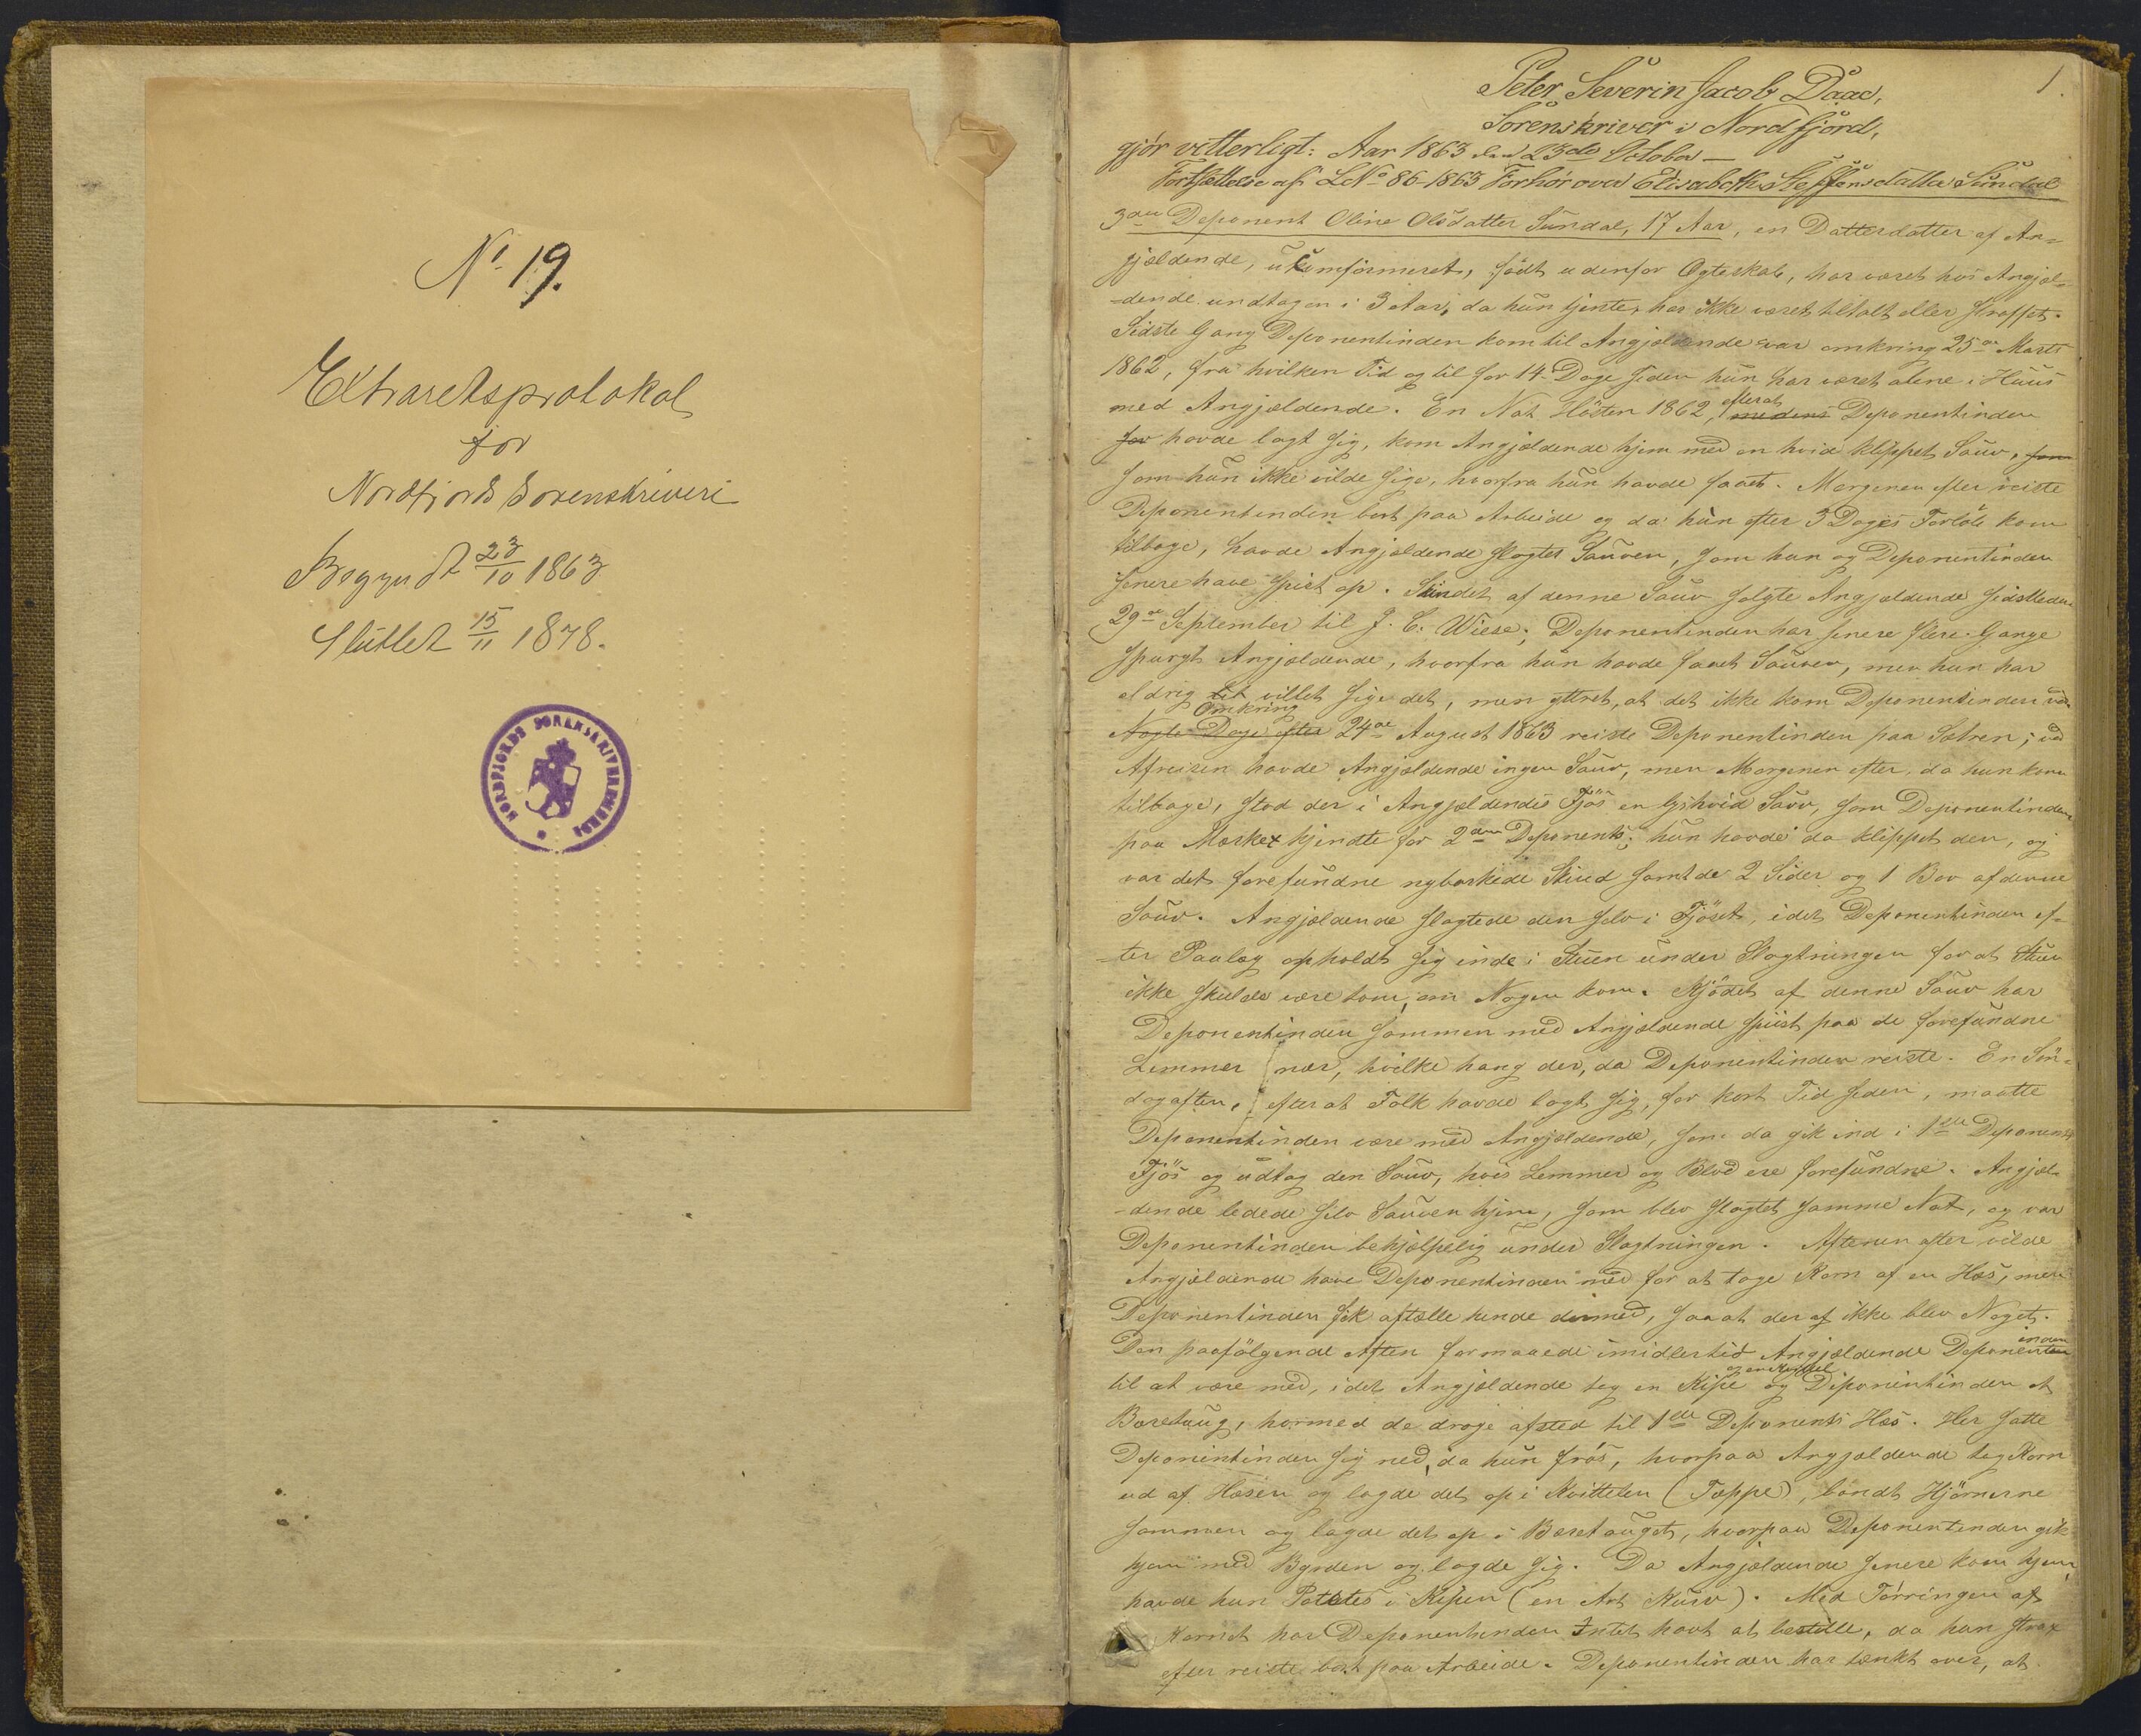 No 19.
Extraretsprotokol
for
Nordfjords Sorenskriveri
Begyndt 23/10 1863
Sluttet 15/11 1878.
NORDFJORDS SORENSKRIVEREMBEDE
1.
Peter Severin Jacob Daae,
Sorenskriver i Nordfjord,
gjör vitterligt: Aar 1863 den 23de October —
Fortsættelse af LNo 86-1863 Forhör over Elisabeth Steffensdatter Sundal
3die Deponent Oline Olsdatter Sundal, 17 Aar, en Datterdatter af An-
gjældende, ukomfirmeret, födt udenfor Ægteskab, har været hos Angjæl-
-dende undtagen i 3 Aar, da hun tjente, har ikke været tiltalt eller straffet.
Sidste Gang Deponentinden kom til Angjældende var omkring 25de Marts
1862, fra hvilken Tid og til for 14 Dage siden hun har været alene i Huus
med Angjældende. En Nat Hösten 1862, efterat medens Deponentinden
for havde lagt sig, kom Angjældende hjem med en hvid klippet Sauv, som
som hun ikke vilde sige, hvorfra hun havde faaet. Morgenen efter reiste
Deponentinden bort paa Arbeide og da hun efter 3 Dages Forlöb kom
tilbage, havde Angjældende slagtet Sauven, som hun og Deponentinden
senere have spist op. Skindet af denne Sauv solgte Angjældende sidstleden
29de September til J. C. Wiese; Deponentinden har senere flere Gange
spurgt Angjældende, hvorfra hun havde faaet Sauven, men hun har
aldrig villet sige det, men yttret, at det ikke kom Deponentinden ved.
Omkring
Nogle Dage efter 24de August 1863 reiste Deponentinden paa Sætren; ved
Afreisen havde Angjældende ingen Sauv, men Morgenen efter, da hun kom
tilbage, stod der i Angjældendes Fjös en lyshvid Sauv, som Deponentinden
paa Mærket kjendte for 2den Deponents; hun havde da klippet den, og
var det forefundne nybarkede Skind samt de 2 Sider og 1 Bov af denne
Sauv. Angjældende slagtede den selv i Fjöset, idet Deponentinden ef-
-ter Paalæg opholdt sig inde i Stuen under Slagtningen for at Stuen
ikke skulde være tom, om Nogen kom. Kjödet af denne Sauv har
Deponentinden sammen med Angjældende spiist paa de forefundne
Lemmer nær, hvilke hang der, da Deponentinden reiste. En Sön-
dagaften, efterat Folk havde lagt sig, for kort Tid siden, maatte
Deponentinden være med Angjældende, som da gik ind i 1ste Deponents
Fjös og udtog den Sauv, hvis Lemmer og Blod ere forefundne. Angjæl-
-dende ledede selv Sauven hjem, som blev slagtet samme Nat, og var
Deponentinden behjælpelig under Slagtningen. Aftenen efter vilde
Angjældende have Deponentinden med for at tage Korn af en Hæs, men
Deponentinden fik aftalle hende dermed, saa at der af ikke blev Noget.
Den paafölgende Aften formaaede imidlertid Angjældende Deponentinden
til at være med, idet Angjældende tog en Kipe og en Kvittel og Deponentinden et
Baretaug, hvormed de droge afsted til 1ste Deponents Hæs. Her satte
Deponentinden sig ned, da hun frös, hvorpaa Angjældende tog Korn
ud af Hæsen og lagde det op i Kvittelen (Tæppe), bandt Hjörnerne
sammen og lagde det op i Baretauget, hvorpaa Deponentinden gik
hjem med Byrden og lagde sig. Da Angjældende senere kom hjem,
havde hun Potetes i Kipen (en Art Kurv). Med Törringen af
Kornet har Deponentinden Intet havt at bestille, da hun strax
efter reiste bort paa Arbeide. Deponentinden har tænkt over, at